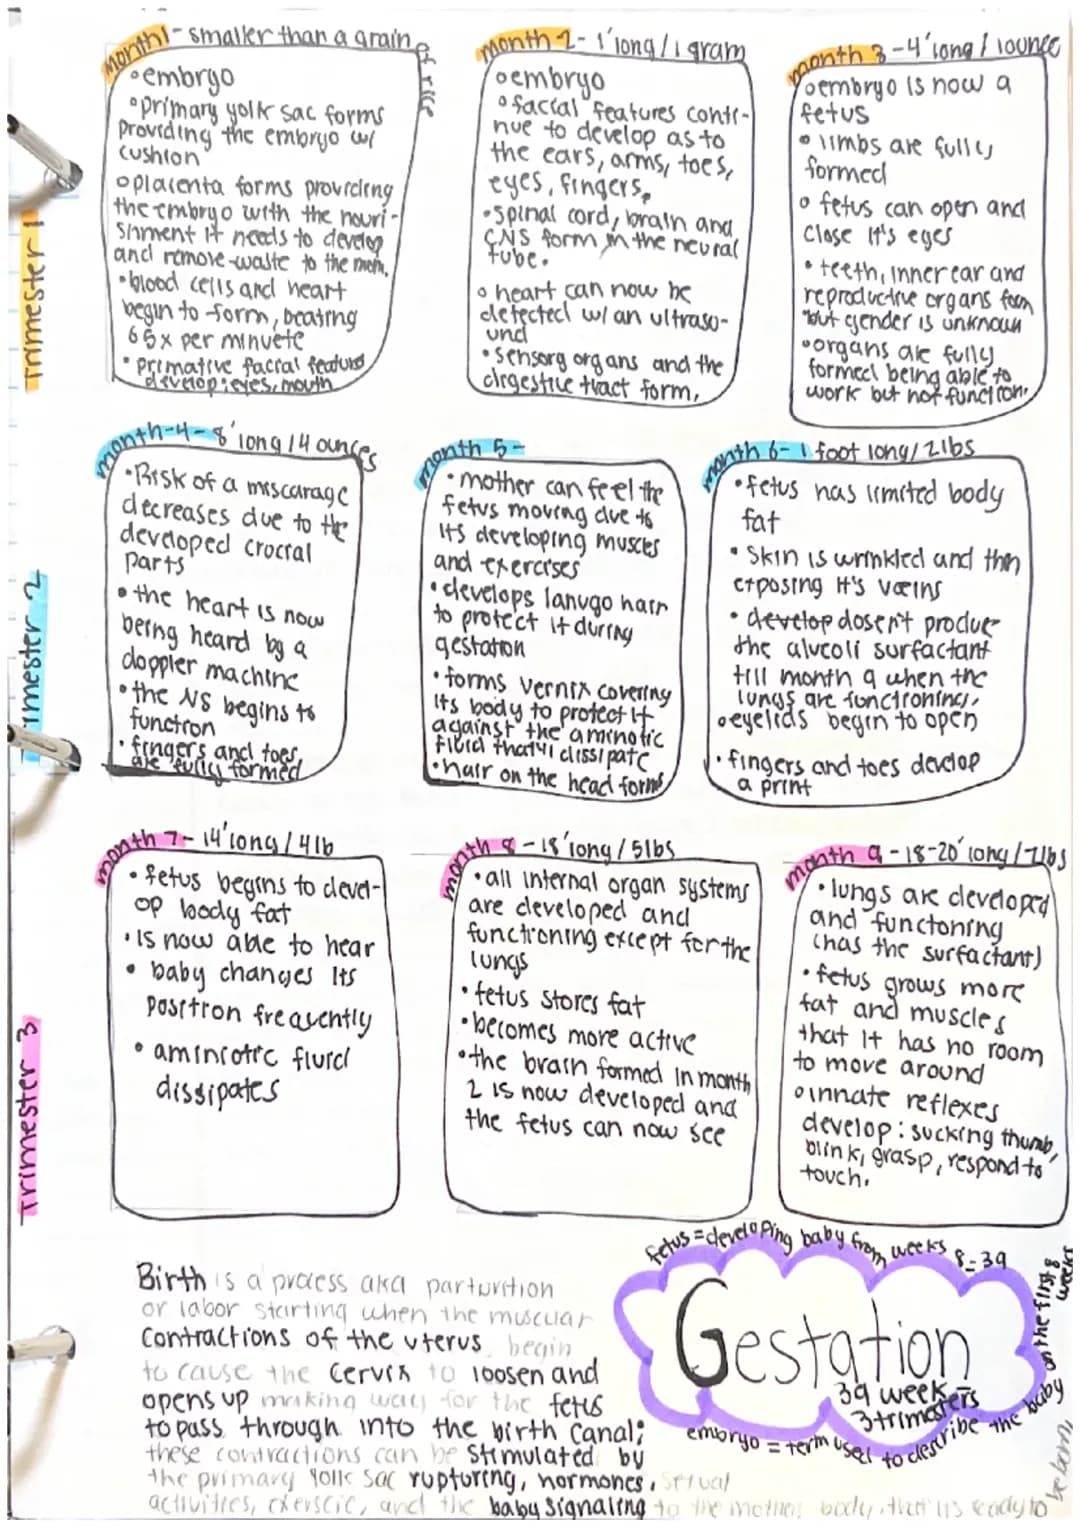 month 1- smaller than a grain of rice
• embryo
• primary yolk sac forms
providing the embryo w/
cushion
• placenta forms providing
the embryo with the nouri-
shment it needs to develop
and remove waste to the mom.
• blood cells and heart
begin to form, beating
65x per minuete
• primative facial feature
develop: eyes, mouth
month 2- 1' long / 1 gram
• embryo
• facial features conti-
nue to develop as to
the ears, arms, toes,
eyes, fingers,
• spinal cord, brain and
CNS form in the neural
tube.
• heart can now be
detected w/ an ultraso-
und
• sensorg organs and the
digestive tract form.
month 3 -4' long / 1 ounce
• embryo is now a
fetus
• limbs are fully
formed
• fetus can open and
close it's eyes
• teeth, inner ear and
reproductive organs form
but gender is unknown
• organs are fully
formed being able to
work but not function.
Trimester 1
month-4- 8' long / 4 ounces
• Risk of a miscarage
decreases due to the
developed crocial
parts
• the heart is now
being heard by a
doppler machine
• the NS begins to
function
• fingers and toes
are fully formed
month 5-
• mother can feel the
fetus moving due to
its developing muscles
and exercises
• develops lanugo hair
to protect it during
gestation
• forms vernix covering
its body to protect it
against the aminotic
fluid that'll dissipate
• hair on the head forms
month 6- 1 foot long / 2lbs
• fetus has limited body
fat
• skin is wrinkled and thin
exposing it's veins
• develop dosen't produe
the alveoli surfactant
till month 9 when the
lungs are functioning.
• eyelids begin to open
• fingers and toes develop
a print
Trimester 2
month 7- 14' long / 4lb
• fetus begins to devel-
op body fat
• is now able to hear
• baby changes its
position freqently
• aminiotic fluid
dissipates
month 8 - 18' long / 5lbs
• all internal organ systems
are developed and
functioning except for the
lungs
• fetus stores fat
• becomes more active
• the brain formed in month
2 is now developed and
the fetus can now see
month 9 - 18-20' long / 7lbs
• lungs are developed
and functoning
(has the surfactant)
• fetus grows more
fat and muscles
that it has no room
to move around
• innate reflexes
develop: sucking thumb,
blink, grasp, respond to
touch.
Trimester 3
Birth is a process aka parturition
or labor starting when the muscular
contractions of the uterus begin
to cause the cervix to loosen and
opens up making way for the fetus
to pass through into the birth canal;
these contractions can be stimulated by
the primary yolk sac rupturing, hormones, sexual
activities, exerscie, and the baby signaling to the mothers body, that its ready to be born.
fetus = developing baby from weeks 8-39
Gestation
39 weeks
3 trimesters
embryo = term used to describe the baby on the first 8 weeks